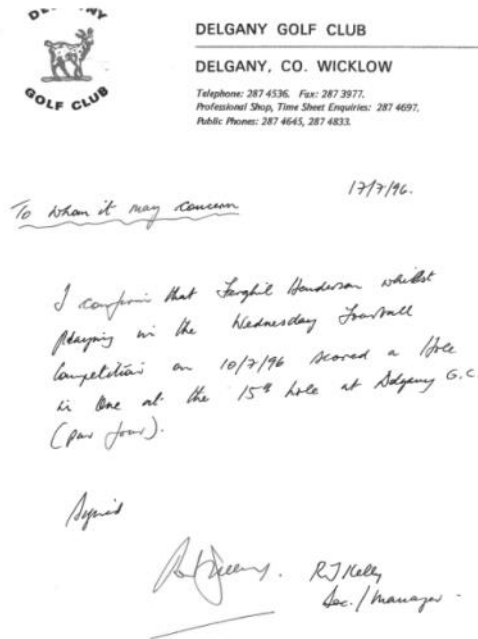 DELGANY
GOLF CLUB
DELGANY GOLF CLUB
DELGANY, CO. WICKLOW
Telephone: 287 4536. Fax: 287 3977.
Professional Shop, Time Sheet Enquiries: 287 4697.
Public Phones: 287 4645, 287 4833.
17/7/96.
To whom it may concern
I confirm that Ferghil Henderson whilst
playing in the Wednesday Fourball
Competition on 10/7/96 scored a Hole
in One at the 15th hole at Delgany G.C
(par four).
Signed
R J Kelly
Sec./Manager.